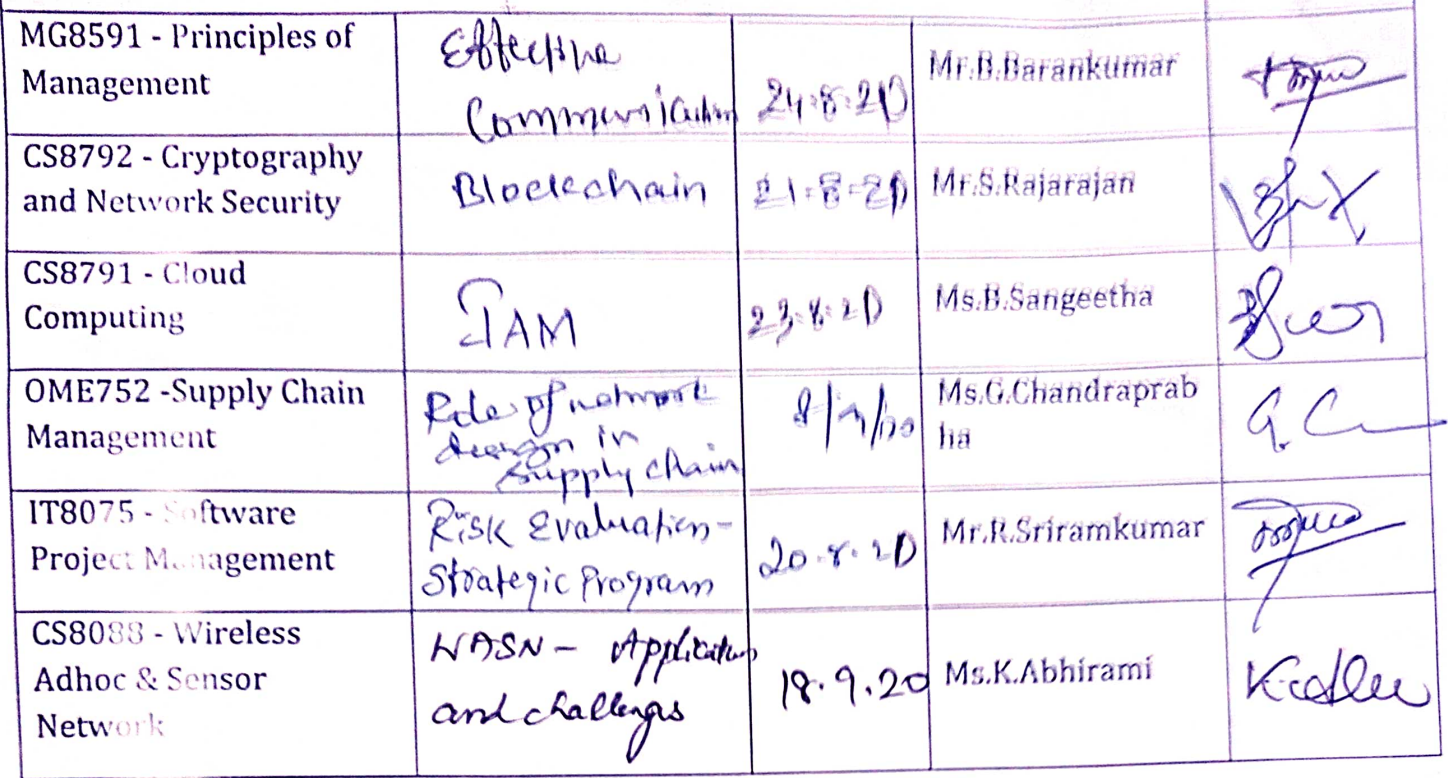 MG8591 - Principles of
Management
Effective
Communication
24.8.20
Mr.B.Barankumar
CS8792 - Cryptography
and Network Security
Blockchain
21.8.20
Mr.S.Rajarajan
CS8791 - Cloud
Computing
IAM
23.8.20
Ms.B.Sangeetha
OME752 -Supply Chain
Management
Role of network
design in
supply chain
Ms.G.Chandraprab
ha
IT8075 - Software
Project Management
Risk Evaluation-
Strategic Program
20.8.20
Mr.R.Sriramkumar
CS8088 - Wireless
Adhoc & Sensor
Network
WASN - Applications
and challenges
18.9.20
Ms.K.Abhirami